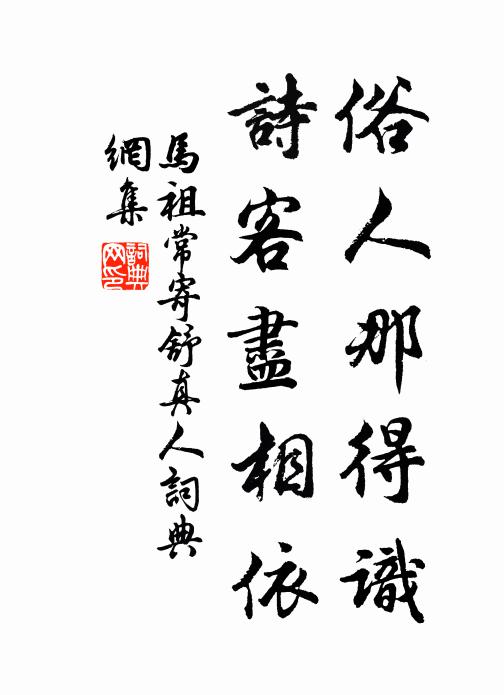 俗人那得識
詩客盡相依
馬祖常寄舒真人詞典
網集
詞典
网印